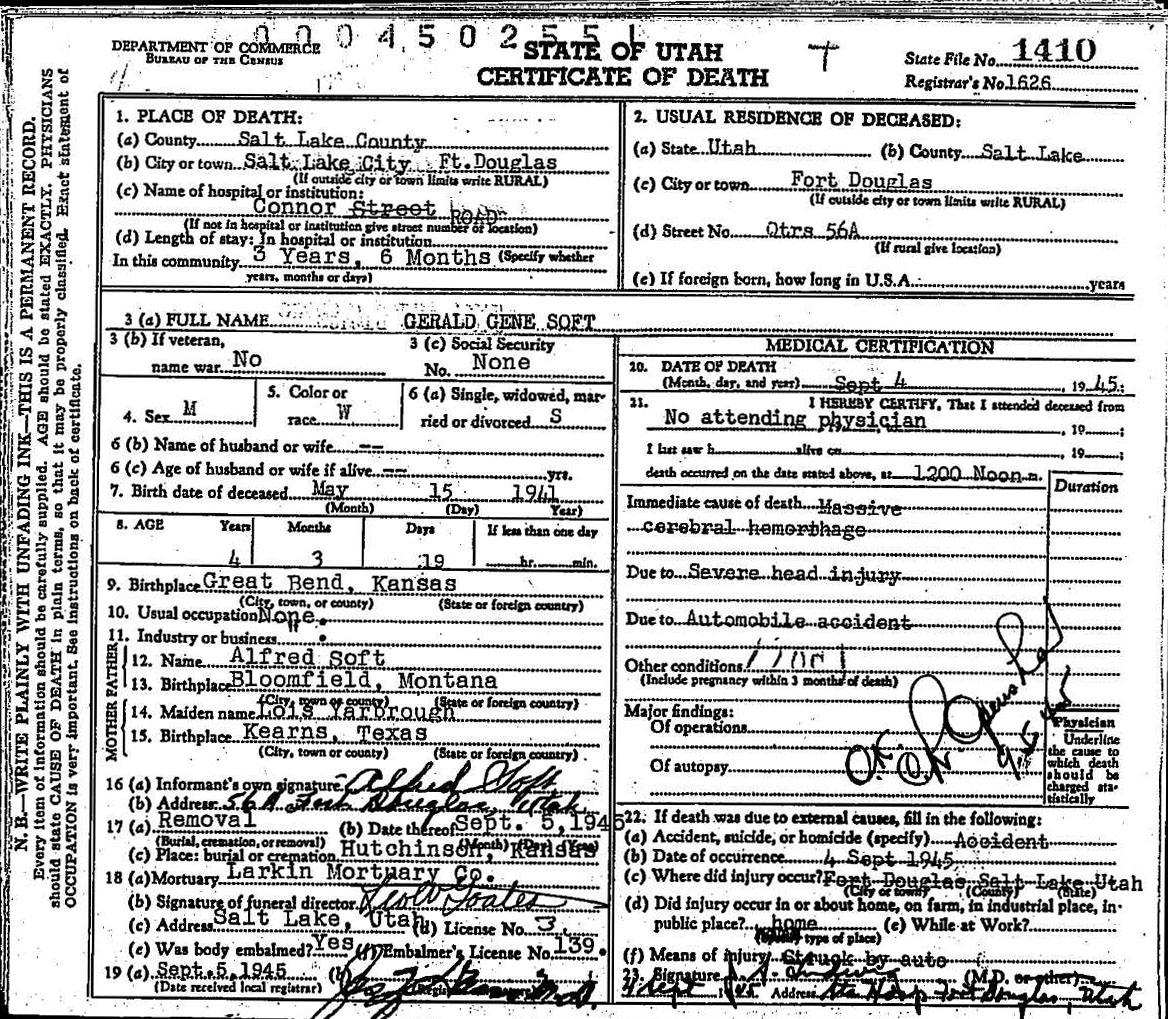 0004502551
DEPARTMENT OF COMMERCE
BUREAU OF THE CENSUS
STATE OF UTAH
CERTIFICATE OF DEATH
State File No. 1410
Registrar's No. 1626
N. B.—WRITE PLAINLY WITH UNFADING INK—THIS IS A PERMANENT RECORD.
Every item of information should be carefully supplied. AGE should be stated EXACTLY. PHYSICIANS
should state CAUSE OF DEATH in plain terms, so that it may be properly classified. Exact statement of
OCCUPATION is very important. See instructions on back of certificate.
1. PLACE OF DEATH:
(a) County Salt Lake County
(b) City or town Salt Lake City Ft. Douglas
(If outside city or town limits write RURAL)
(c) Name of hospital or institution:
Connor Street ROAD
(If not in hospital or institution give street number or location)
(d) Length of stay: In hospital or institution
In this community 3 Years, 6 Months (Specify whether
years, months or days)
2. USUAL RESIDENCE OF DECEASED:
(a) State Utah (b) County Salt Lake
(c) City or town Fort Douglas
(If outside city or town limits write RURAL)
(d) Street No. Qtrs 56A
(If rural give location)
(e) If foreign born, how long in U.S.A. years
3 (a) FULL NAME GERALD GENE SOFT
3 (b) If veteran,
name war No
3 (c) Social Security
No. None
4. Sex M
5. Color or
race W
6 (a) Single, widowed, mar-
ried or divorced S
6 (b) Name of husband or wife --
6 (c) Age of husband or wife if alive -- yrs.
7. Birth date of deceased May 15 1941
(Month) (Day) Year)
8. AGE Years Months Days If less than one day
4 3 19 hr. min.
9. Birthplace Great Bend, Kansas
(City, town, or county) (State or foreign country)
10. Usual occupation None.
11. Industry or business "
FATHER
12. Name Alfred Soft
13. Birthplace Bloomfield, Montana
(City, town or county) (State or foreign country)
MOTHER
14. Maiden name Lois Yarbrough
15. Birthplace Kearns, Texas
(City, town or county) (State or foreign country)
16 (a) Informant's own signature Alfred Soft
(b) Address 56A Fort Douglas, Utah
17 (a) Removal (b) Date thereof Sept. 5, 1945
(Burial, cremation, or removal) (Month) (Day) (Year)
(c) Place: burial or cremation Hutchinson, Kansas
18 (a) Mortuary Larkin Mortuary Co.
(b) Signature of funeral director
(c) Address Salt Lake, Utah (d) License No. 3.
(e) Was body embalmed? Yes (f) Embalmer's License No. 139.
19 (a) Sept. 5, 1945 (b)
(Date received local registrar)
MEDICAL CERTIFICATION
20. DATE OF DEATH
(Month, day, and year) Sept 4, 1945;
21. I HEREBY CERTIFY, That I attended deceased from
No attending physician, 19 ;
I last saw h alive on , 19 ;
death occurred on the date stated above, at 1200 Noon m.
Duration
Immediate cause of death Massive
cerebral hemorrhage
Due to Severe head injury
Due to Automobile accident
Other conditions
(Include pregnancy within 3 months of death)
Major findings:
Of operations
Of autopsy
O.K.
Physician
Underline
the cause to
which death
should be
charged sta-
tistically
22. If death was due to external causes, fill in the following:
(a) Accident, suicide, or homicide (specify) Accident
(b) Date of occurrence 4 Sept 1945
(c) Where did injury occur? Fort Douglas, Salt Lake, Utah
(City or town) (County) (State)
(d) Did injury occur in or about home, on farm, in industrial place, in
public place? home (e) While at Work?
(Specify type of place)
(f) Means of injury Struck by auto
23. Signature (M.D. or other)
4 Sept 1945 Address Sta Hosp Fort Douglas, Utah